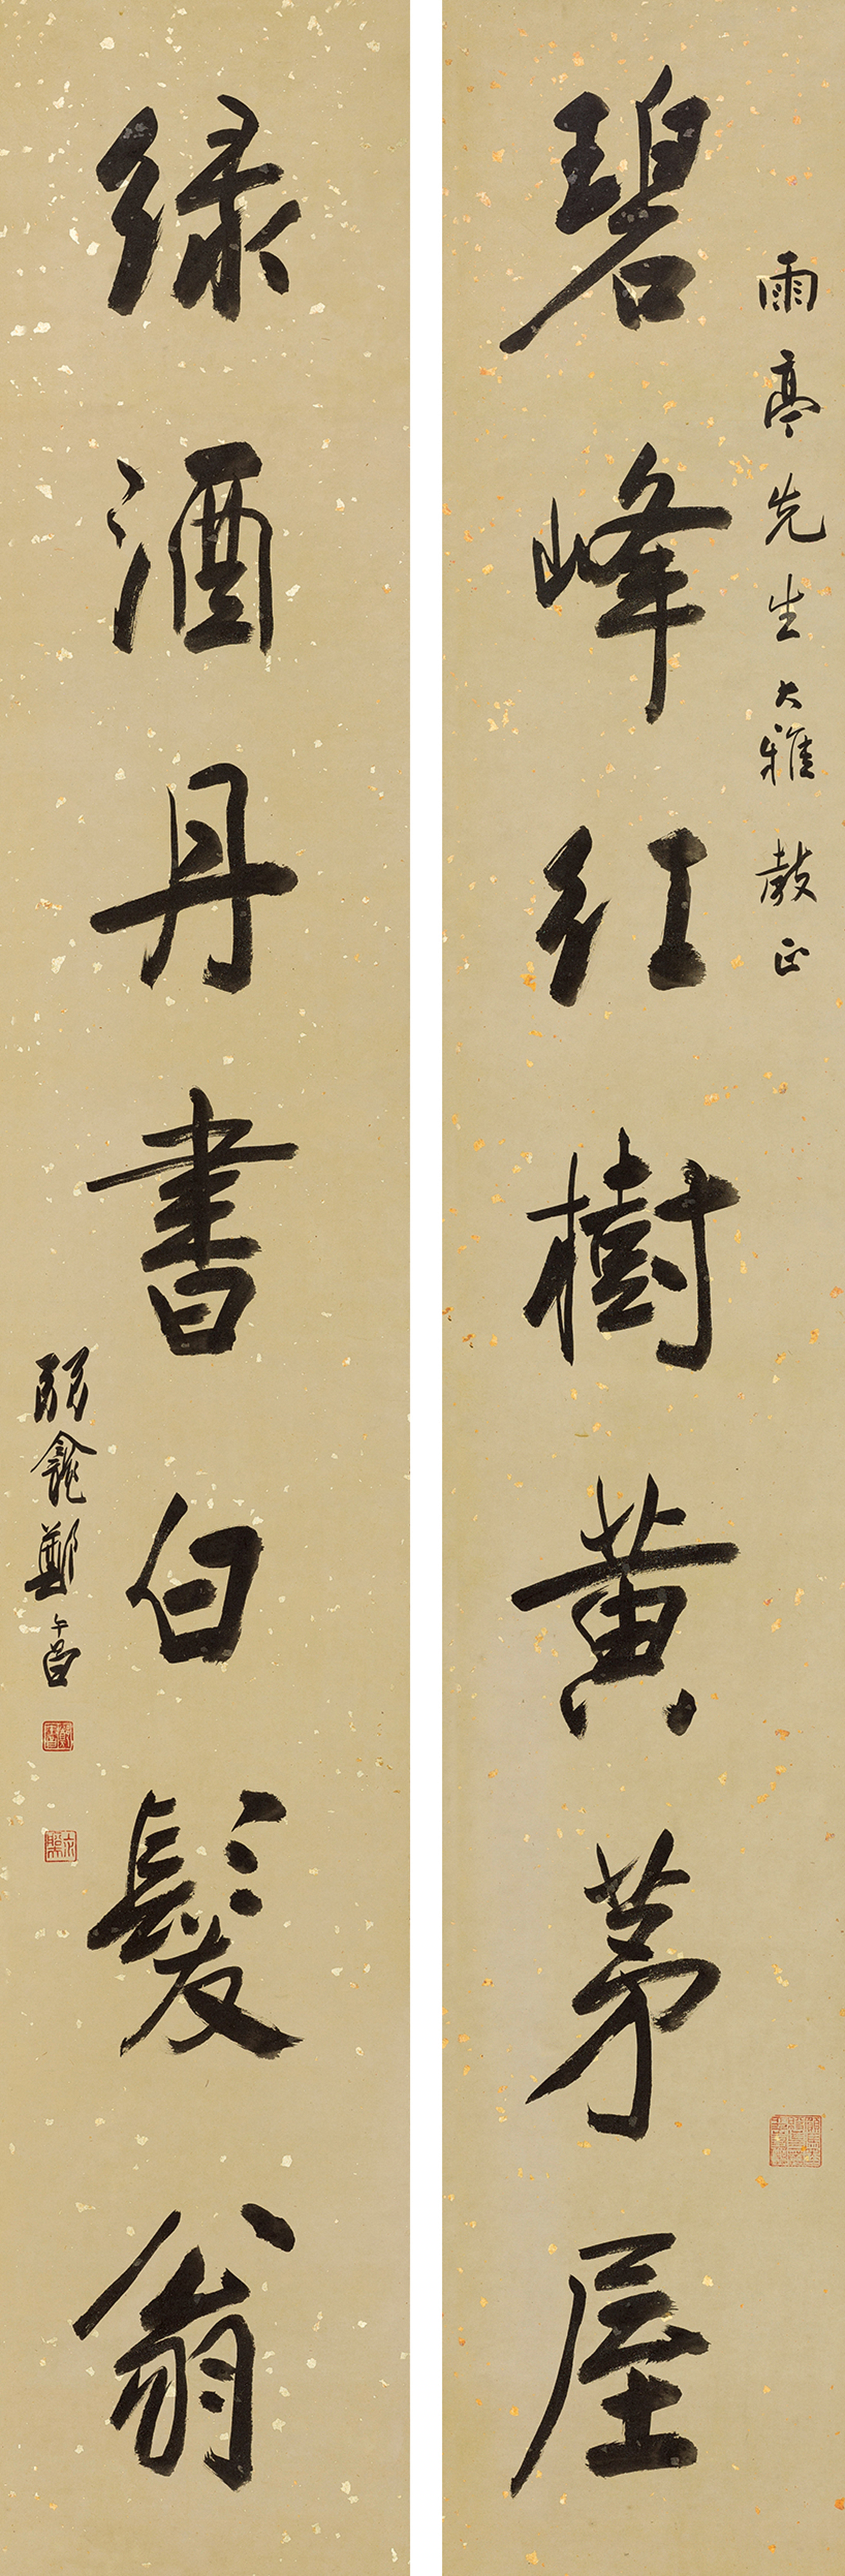 雨亭先生大雅教正
碧峰紅樹黃茅屋
綠酒丹書白髮翁
弱龕鄭午昌